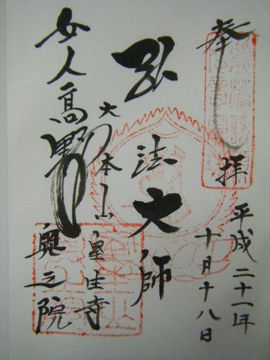 奉拝
平成二十一年
十月十八日
弘法大師
大本山
室生寺
女人高野
奥之院